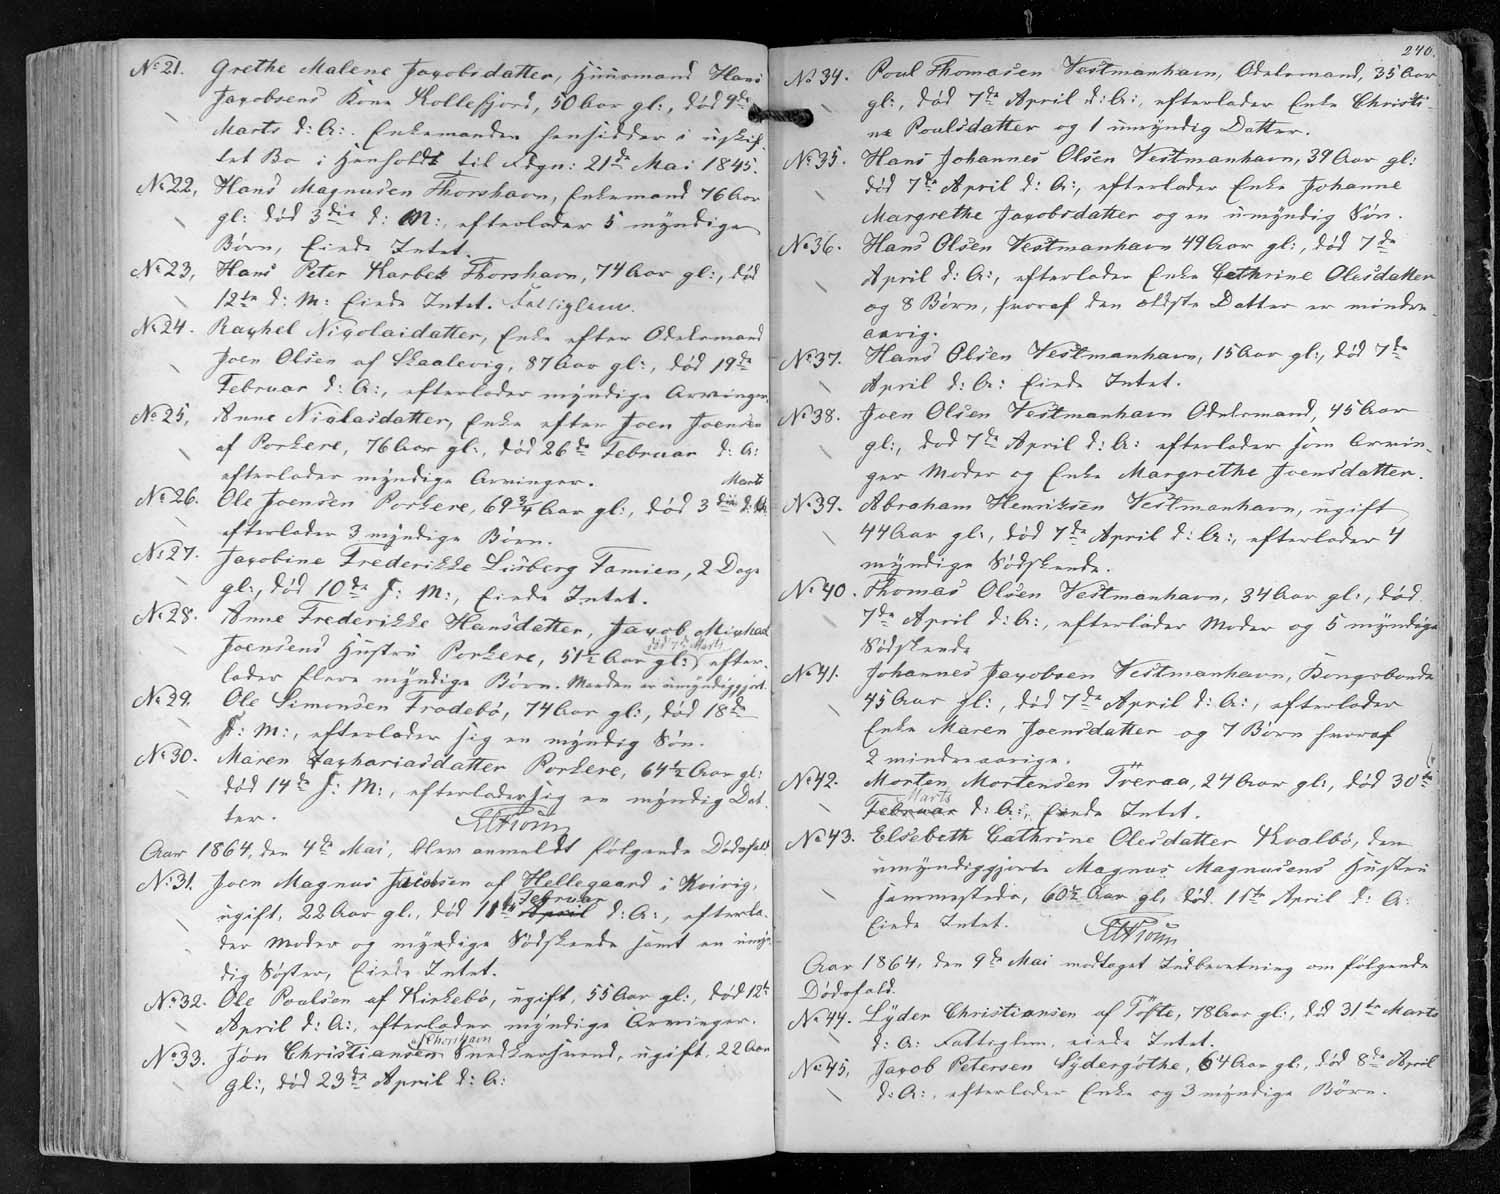 No 21. Grethe Malene Jacobsdatter, Huusmand Hans
Jacobsens Kone Kollefjord, 50 Aar gl:, død 9de
Marts d: A:. Enkemanden hensidder i uskif-
tet Bo i Henhold til Fdgn: 21de Mai 1845.
No 22, Hans Magnusen Thorshavn, Enkemand 76 Aar
gl: død 3die d: M:, efterlader 5 myndige
Børn, Eiede Intet.
No 23, Hans Peter Karbek Thorshavn, 74 Aar gl:, død
12te d: M: Eiede Intet. Fattiglem.
No 24. Rachel Nicolaidatter, Enke efter Odelsmand
Joen Olsen af Skaalevig, 87 Aar gl:, død 19de
Februar d: A:, efterlader myndige Arvinger.
No 25, Anne Niclasdatter, Enke efter Joen Joensen
af Porkere, 76 Aar gl:, død 26de Februar d: A:
efterlader myndige Arvinger.
Marts
No 26. Ole Joensen Porkere, 69 3/4 Aar gl:, død 3die d: A:
efterlader 3 myndige Børn.
No 27. Jacobine Frederikke Lisberg Famien, 2 Dage
gl:, død 10de f: M:, Eiede Intet.
No 28. Anne Frederikke Hansdatter, Jacob Michael
død 7de Marts
Joensens Hustru Porkere, 51 1/2 Aar gl: efter-
lader flere myndige Børn. Manden er umyndiggjort.
No 29. Ole Simonsen Frodebø, 74 Aar gl:, død 18de
f: M:, efterlader sig en myndig Søn.
No 30. Maren Zachariasdatter Porkere, 64 1/2 Aar gl:
død 14de f: M:, efterlader sig en myndig Dat-
ter.
Aar 1864, den 4de Mai, blev anmeldt følgende Dødsfald
No 31. Joen Magnus Jacobsen af Hellegaard i Kvivig,
Februar
ugift, 22 Aar gl., død 11te April d: A:, efterla-
der Moder og myndige Sødskende samt en umyn-
dig Søster, Eiede Intet.
No 32. Ole Poulsen af Kirkebø, ugift, 55 Aar gl:, død 12te
April d: A:, efterlader myndige Arvinger.
Thorshavn
No 33. Jon Christiansen Snedkersvend, ugift, 22 Aar
gl:, død 23de April d: A:
240.
No 34. Poul Thomasen Vestmanhavn, Odelsmand, 35 Aar
gl:, død 7de April d: A:, efterlader Enke Christi-
ne Poulsdatter og 1 umyndig Datter.
No 35. Hans Johannes Olsen Vestmanhavn, 39 Aar gl:
død 7de April d: A:, efterlader Enke Johanne
Margrethe Jacobsdatter og en umyndig Søn.
No 36. Hans Olsen Vestmanhavn 49 Aar gl:, død 7de
April d: A:, efterlader Enke Cathrine Olesdatter
og 8 Børn, hvoraf den ældste Datter er mindre-
aarig.
No 37. Hans Olsen Vestmanhavn, 15 Aar gl:, død 7de
April d: A: Eiede Intet.
No 38. Joen Olsen Vestmanhavn Odelsmand, 45 Aar
gl:, død 7de April d: A: efterlader som Arvin-
ger Moder og Enke Margrethe Joensdatter.
No 39. Abraham Henriksen Vestmanhavn, ugift,
44 Aar gl:, død 7de April d: A:, efterlader 4
myndige Sødskende.
No 40. Thomas Olsen Vestmanhavn, 34 Aar gl:, død
7de April d: A:, efterlader Moder og 5 myndige
Sødskende
No 41. Johannes Jacobsen Vestmanhavn, Kongsbonde
45 Aar gl:, død 7de April d: A:, efterlader
Enke Maren Joensdatter og 7 Børn hvoraf
2 mindreaarige.
No 42. Morten Mortensen Tveraa, 24 Aar gl:, død 30te
Marts
Februar d: A:, Eiede Intet.
No 43. Elsebeth Cathrine Olesdatter Kvalbø, den
umyndiggjorte Magnus Magnusens Hustru
sammesteds, 60 1/2 Aar gl, død 11te April d: A:
Eiede Intet.
Aar 1864, den 9de Mai modtaget Indberetning om følgende
Dødsfald.
No 44. Lyder Christiansen af Tøfte, 78 Aar gl:, død 31te Marts
d: A: Fattiglem, eiede Intet.
No 45, Jacob Petersen Sydergøthe, 64 Aar gl:, død 8de April
d: A:, efterlader Enke og 3 myndige Børn.